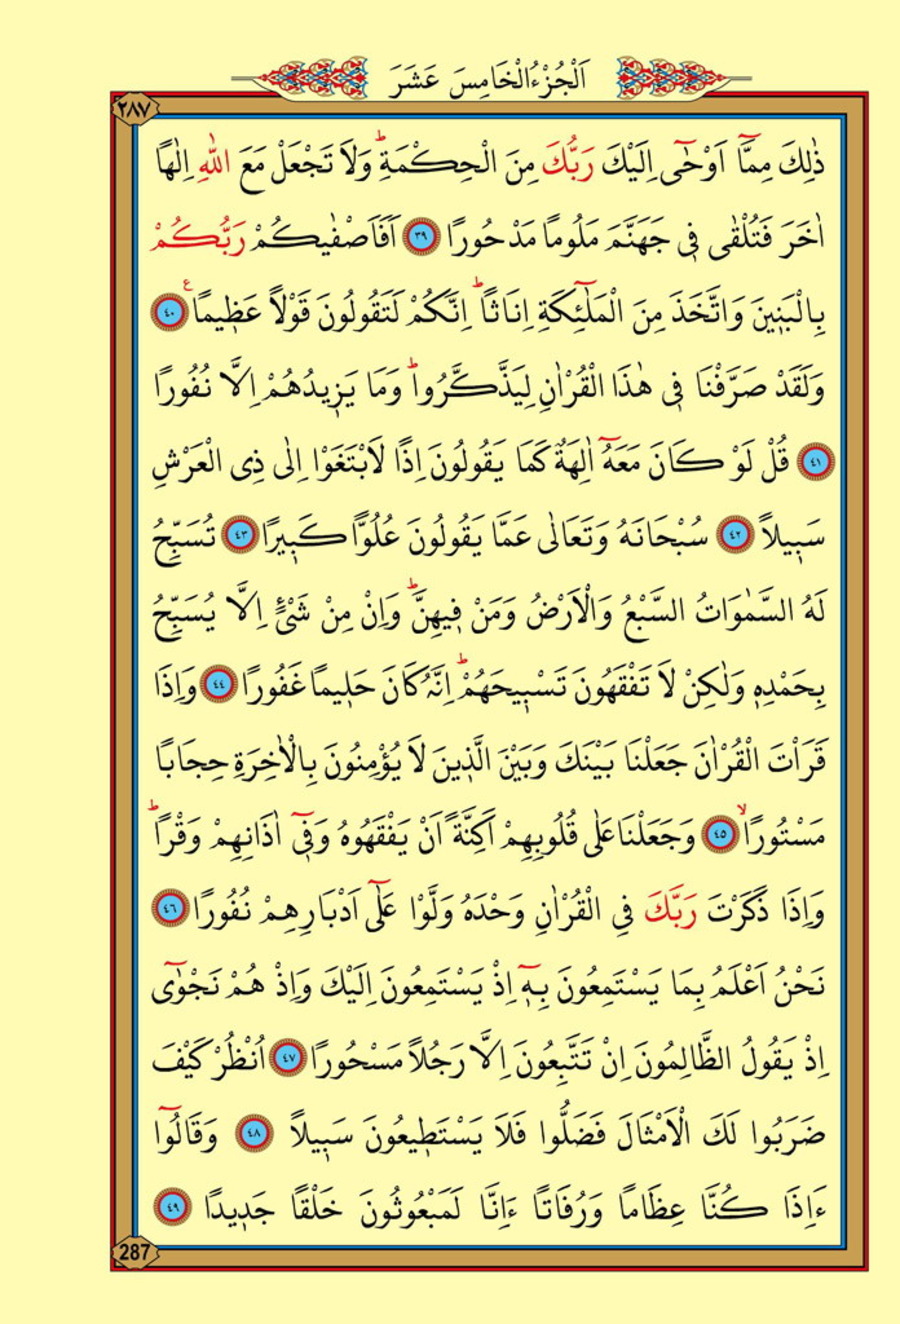 اَلْجُزْءُ الْخَامِسَ عَشَرَ
٢٨٧
ذٰلِكَ مِمَّٓا اَوْحٰٓى اِلَيْكَ رَبُّكَ مِنَ الْحِكْمَةِۜ وَلَا تَجْعَلْ مَعَ اللّٰهِ اِلٰهًا
اٰخَرَ فَتُلْقٰى ف۪ي جَهَنَّمَ مَلُومًا مَدْحُورًا ٣٩ اَفَاَصْفٰيكُمْ رَبُّكُمْ
بِالْبَن۪ينَ وَاتَّخَذَ مِنَ الْمَلٰٓئِكَةِ اِنَاثًاۜ اِنَّكُمْ لَتَقُولُونَ قَوْلًا عَظ۪يمًا۟ ٤٠
وَلَقَدْ صَرَّفْنَا ف۪ي هٰذَا الْقُرْاٰنِ لِيَذَّكَّرُواۜ وَمَا يَز۪يدُهُمْ اِلَّا نُفُورًا
٤١ قُلْ لَوْ كَانَ مَعَهُٓ اٰلِهَةٌ كَمَا يَقُولُونَ اِذًا لَابْتَغَوْا اِلٰى ذِي الْعَرْشِ
سَب۪يلًا ٤٢ سُبْحَانَهُ وَتَعَالٰى عَمَّا يَقُولُونَ عُلُوًّا كَب۪يرًا ٤٣ تُسَبِّحُ
لَهُ السَّمٰوَاتُ السَّبْعُ وَالْاَرْضُ وَمَنْ ف۪يهِنَّۜ وَاِنْ مِنْ شَيْءٍ اِلَّا يُسَبِّحُ
بِحَمْدِه۪ وَلٰكِنْ لَا تَفْقَهُونَ تَسْب۪يحَهُمْۜ اِنَّهُ كَانَ حَل۪يمًا غَفُورًا ٤٤ وَاِذَا
قَرَاْتَ الْقُرْاٰنَ جَعَلْنَا بَيْنَكَ وَبَيْنَ الَّذ۪ينَ لَا يُؤْمِنُونَ بِالْاٰخِرَةِ حِجَابًا
مَسْتُورًاۙ ٤٥ وَجَعَلْنَا عَلٰى قُلُوبِهِمْ اَكِنَّةً اَنْ يَفْقَهُوهُ وَف۪ٓي اٰذَانِهِمْ وَقْرًاۜ
وَاِذَا ذَكَرْتَ رَبَّكَ فِي الْقُرْاٰنِ وَحْدَهُ وَلَّوْا عَلٰٓى اَدْبَارِهِمْ نُفُورًا ٤٦
نَحْنُ اَعْلَمُ بِمَا يَسْتَمِعُونَ بِه۪ٓ اِذْ يَسْتَمِعُونَ اِلَيْكَ وَاِذْ هُمْ نَجْوٰٓى
اِذْ يَقُولُ الظَّالِمُونَ اِنْ تَتَّبِعُونَ اِلَّا رَجُلًا مَسْحُورًا ٤٧ اُنْظُرْ كَيْفَ
ضَرَبُوا لَكَ الْاَمْثَالَ فَضَلُّوا فَلَا يَسْتَط۪يعُونَ سَب۪يلًا ٤٨ وَقَالُٓوا
ءَاِذَا كُنَّا عِظَامًا وَرُفَاتًا ءَاِنَّا لَمَبْعُوثُونَ خَلْقًا جَد۪يدًا ٤٩
287